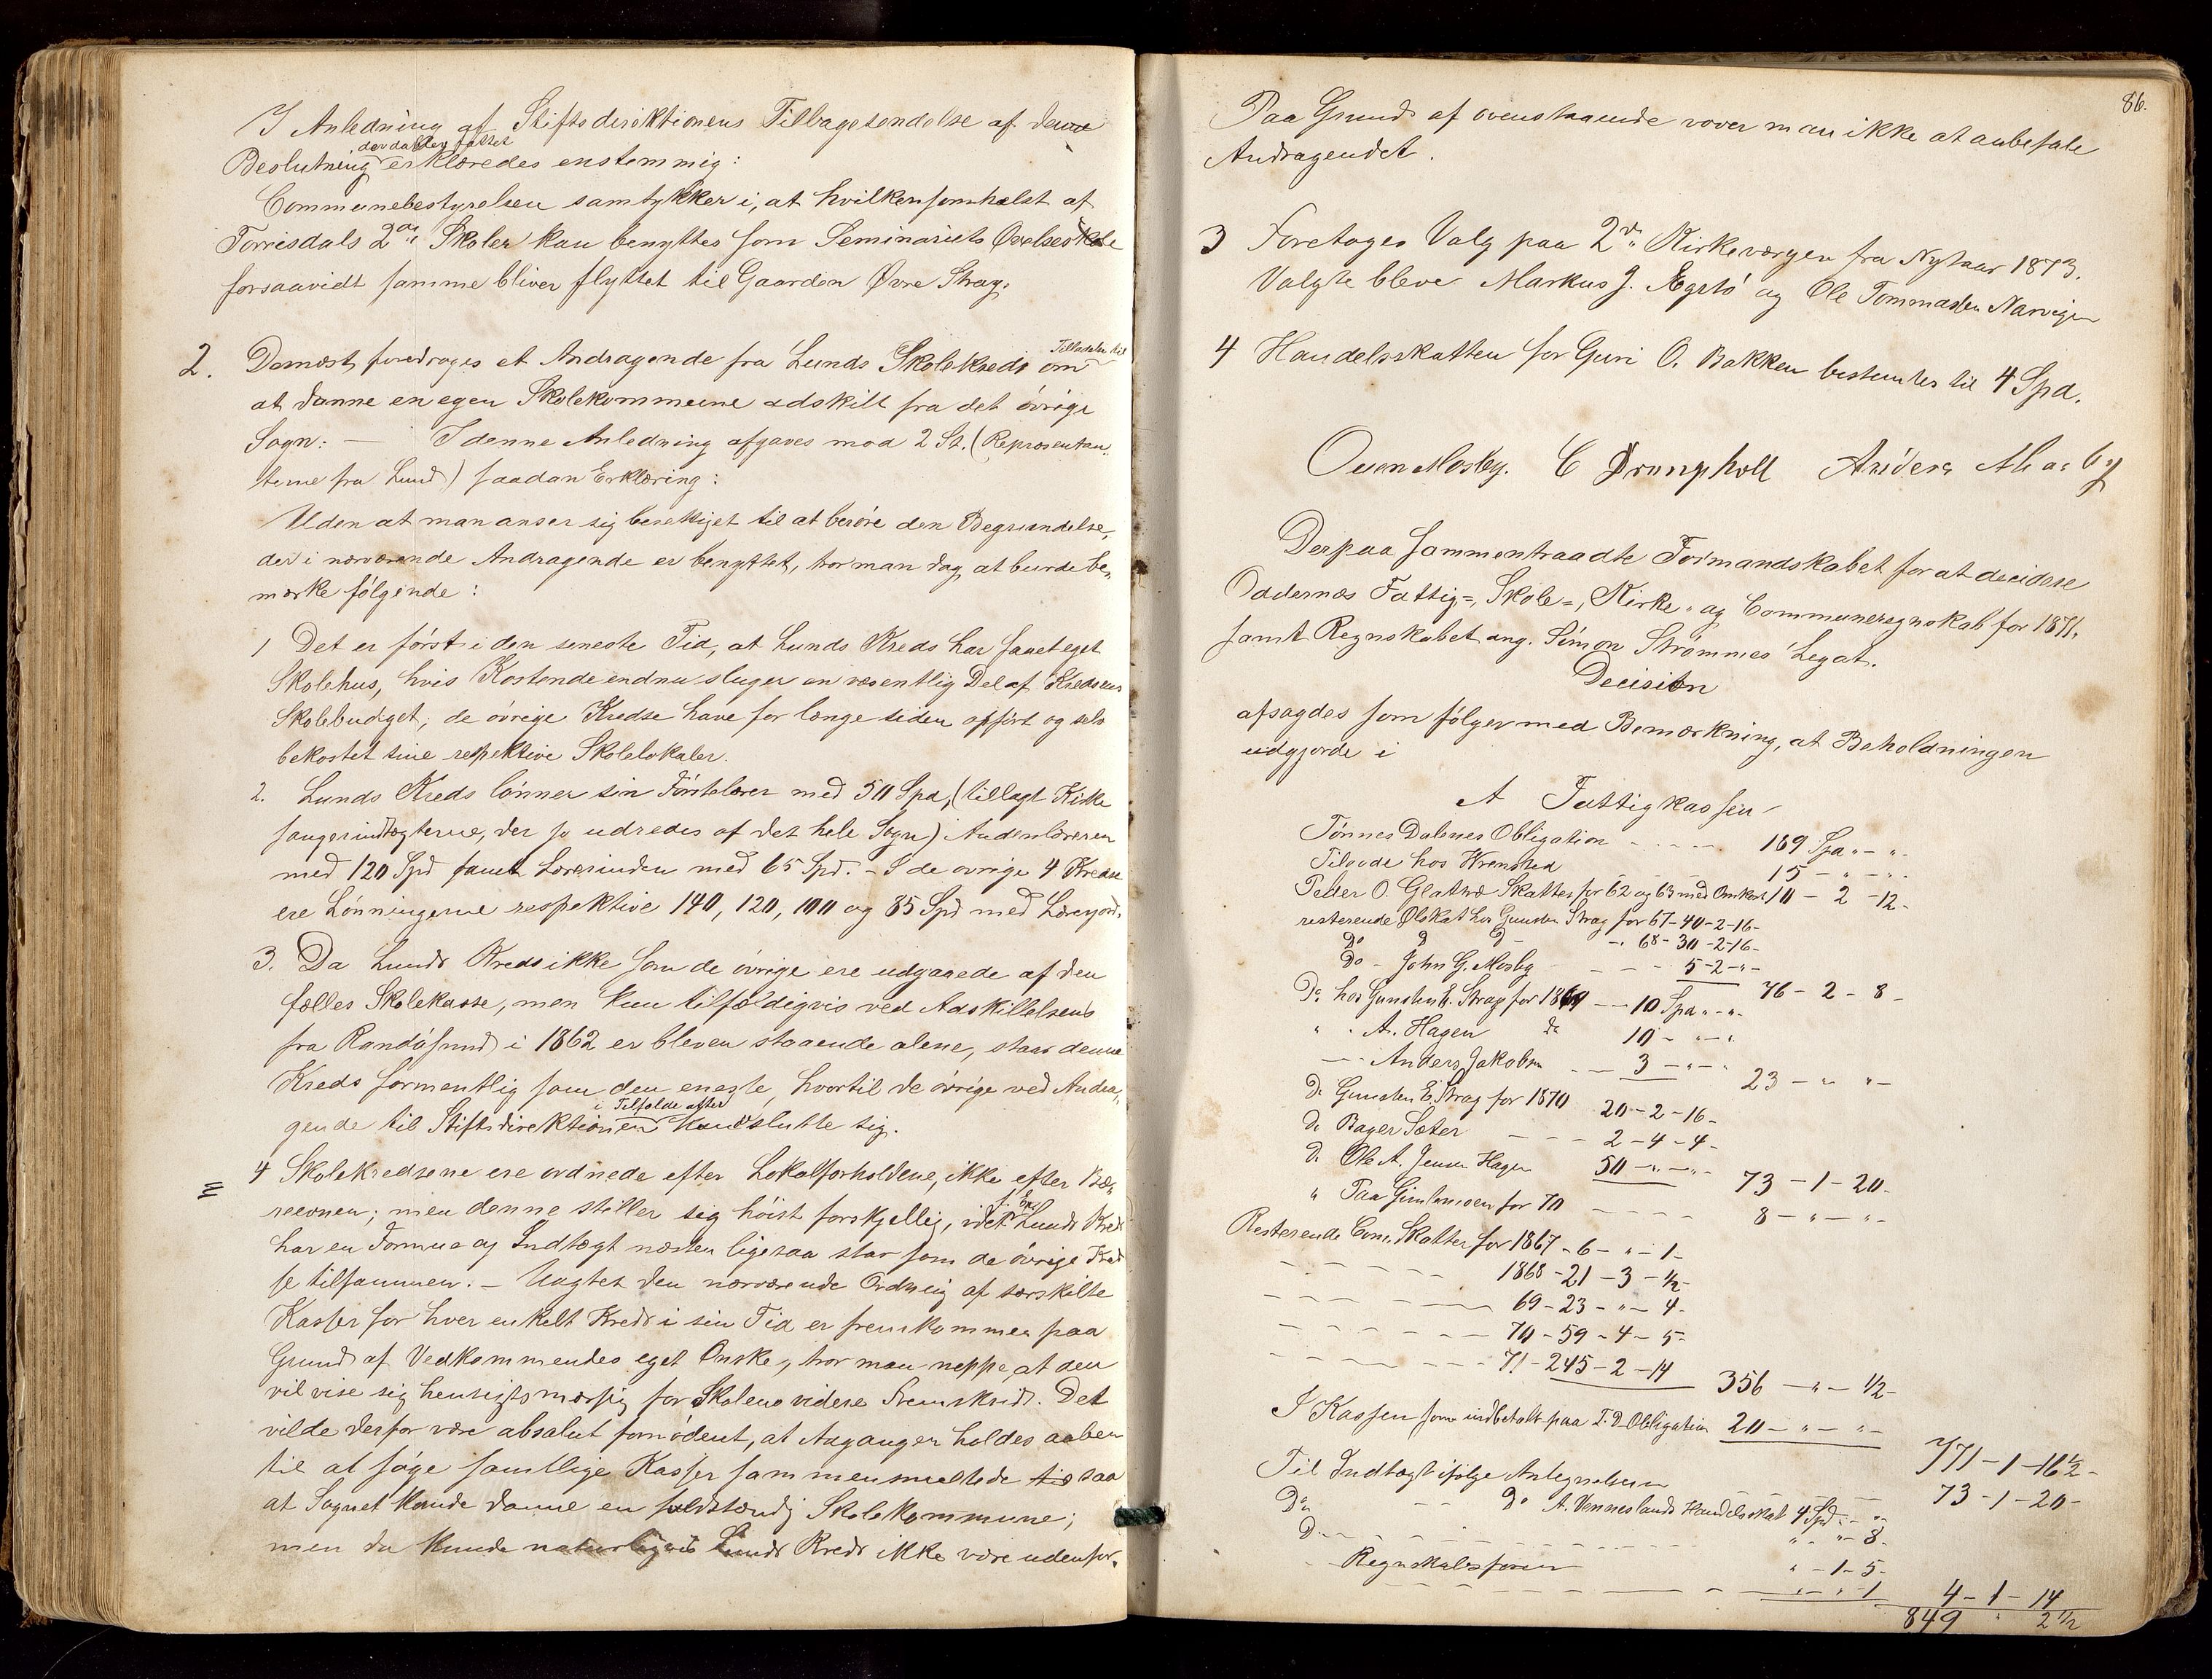 I Anledning af Stiftsdirektionens Tilbagesendelse af denne
Beslutning erklæredes enstemmig:
Communebestyrelsen samtykker i, at hvilkensomhelst af
Torrisdals 2de Skoler kan benyttes som Seminariets Øvelsesskole
forsaavidt samme bliver flyttet til Gaarden Øvre Strag.
2. Dernæst foredroges et Andragende fra Lunds Skolekreds om Tilladelse til
at danne en egen Skolekommune adskilt fra det övrige
Sogn: — I denne Anledning afgaves mod 2 St. (Repræsentan-
terne fra Lund) saadan Erklæring:
Uden at man anser sig berettiget til at beröre den Begrundelse,
der i nærværende Andragende er benyttet, tror man dog at burde be-
mærke følgende:
1 Det er först i den seneste Tid, at Lunds Kreds har faaet eget
Skolehus, hvis Kostende endnu sluger en væsentlig Del af Kredsens
Skolebudget; de övrige Kredse have for længe siden opfört og selv
bekostet sine respektive Skolelokaler.
2. Lunds Kreds lönner sin Förstelærer med 50 Spd, (tillagt Kirke
sangerindtægterne, der jo udredes af det hele Sogn) Andenlæreren
med 120 Spd samt Lærerinden med 65 Spd. - I de övrige 4 Kredse
ere Lönningerne respektive 140, 120, 100 og 85 Spd med Lærerjord.
3. Da Lunds Kreds ikke som de övrige ere udgaaede af den
fælles Skolekasse, men kun tilfældigvis ved Adskillelsens
fra Randösund i 1862 er bleven staaende alene, staar denne
Kreds formentlig som den eneste, hvortil de övrige ved Andra-
gende til Stiftsdirektionen i Tilfælde efter Kund slutte sig.
4 Skolekredsene ere ordnede efter Lokalforholdene, ikke efter Bæ-
reevnen; men denne stiller sig höist forskjellig, idet f. Ex. Lunds Kreds
har en Formue og Indtægt næsten ligesaa stor som de övrige Kred
se tilsammen. - Uagtet den nærværende Ordning af særskilte
Kasser for hver enkelt Kreds i sin Tid er fremkommen paa
Grund af Vedkommendes eget Önske, tror man neppe, at den
vil vise sig hensigtsmæssig for Skolens videre Fremskridt. Det
vilde derfor være absolut fornödent, at Adgangen holdes aaben
til at söge samtlige Kasser sammensmeltede saa
at Sognet kunde danne en fuldstændig Skolekommune;
men da kunde naturligvis Lunds Kreds ikke være udenfor.
86.
Paa Grund af ovenstaaende vover man ikke at anbefale
Andragendet.
3 Foretoges Valg paa 2de Kirkeværger fra Nytaar 1873.
Valgte bleve Markus J. Ægstö og Ole Tommassen Narvigen
4 Handelsskatten for Guri O. Bakken bestemtes til 4 Spd.
Ouen Mosby. C Drangsholt Anders Aabÿ
Derpaa sammentraadte Formandskabet for at decidere
Oddernæs Fattig=, Skole=, Kirke- og Communeregnskab for 1871,
samt Regnskabet ang. Simon Strömmes Legat.
Decision
afsagdes som følger med Bemærkning, at Beholdningen
udgjorde i
A Fattigkassen
Tönnes Dalenes Obligation - - - - 189 Spd " - " -
Tilgode hos Wrensted 15 - " - " -
Peder O. Glatræ Skatter for 62 og 63 med Omkost 10 - 2 - 12 -
resterende Ölskat hos Gunsten Strag for 67 - 40 - 2 - 16 -
Do Do Do - 68 - 30 - 2 - 16 -
Do - John G. Mosby - - - 5 - 2 - " -
76 - 2 - 8 -
Do hos Gunsten E. Strag for 1869 - 10 Spd " - " -
" - A. Hagen do 10 - " - "
- Anders Jakobsen - - 3 - " - " 23 - " " -
Do Gunsten E. Strag for 1870 20 - 2 - 16 -
Do Bager Sæter - - - 2 - 4 - 4 -
Do Ole A. Jensen Hagen 50 - " - " - 73 - 1 - 20 -
" Paa Gimlemoen for 70 - - - - 8 - " - " -
Resterende Com. Skatter for 1867 - 6 - " - 1 -
- - - - - - 1868 - 21 - 3 - ½ -
- - - - - - 69 - 23 - " - 4 -
- - - - - - 70 - 59 - 4 - 5 -
- - - - - - 71 - 245 - 2 - 14 356 - " - ½ -
I Kassen som indbetalt paa T. D Obligation 20 - " - " -
771 - 1 - 16½ -
Til Indtægt ifølge Antegnelserne - - - 73 - 1 - 20 -
Do - - Do A. Venneslands Handelsskat 4 Spd " - " -
Do - - - - - - - - " - " - 8 -
Regnskabsføreren " - 1 - 5 -
- - - - - - - " - " - 1 4 - 1 - 14
849 " 2½